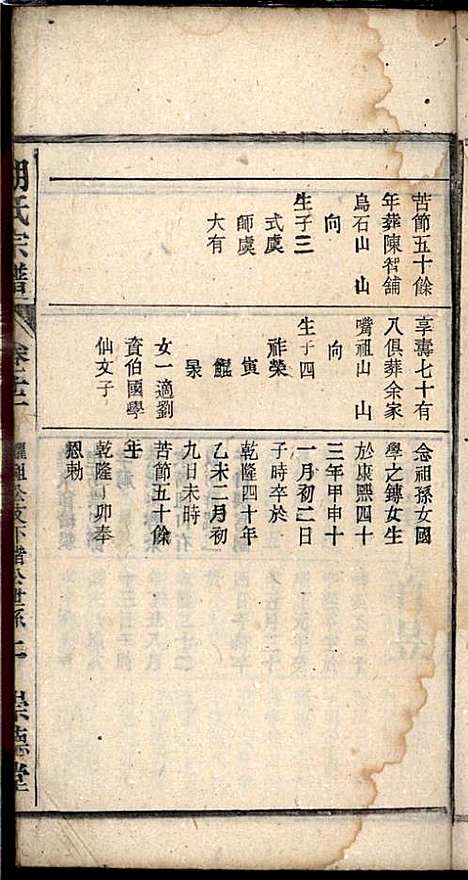 苦節五十餘
年葬陳智舖
烏石山 山
向
生子三
式虞
師虞
大有
享壽七十有
八俱葬余家
嘴祖山 山
向
生子四
祚榮
寅
餛
杲
女一適劉
資伯國學
仙文子
念祖孫女國
學之鏄女生
於康熙四十
三年甲申十
一月初二日
子時卒於
乾隆四十年
乙未二月初
九日未時
苦節五十餘
年
乾隆丁卯奉
恩勅
胡氏宗譜 卷之二 祖公支下 公世系 二 崇德堂